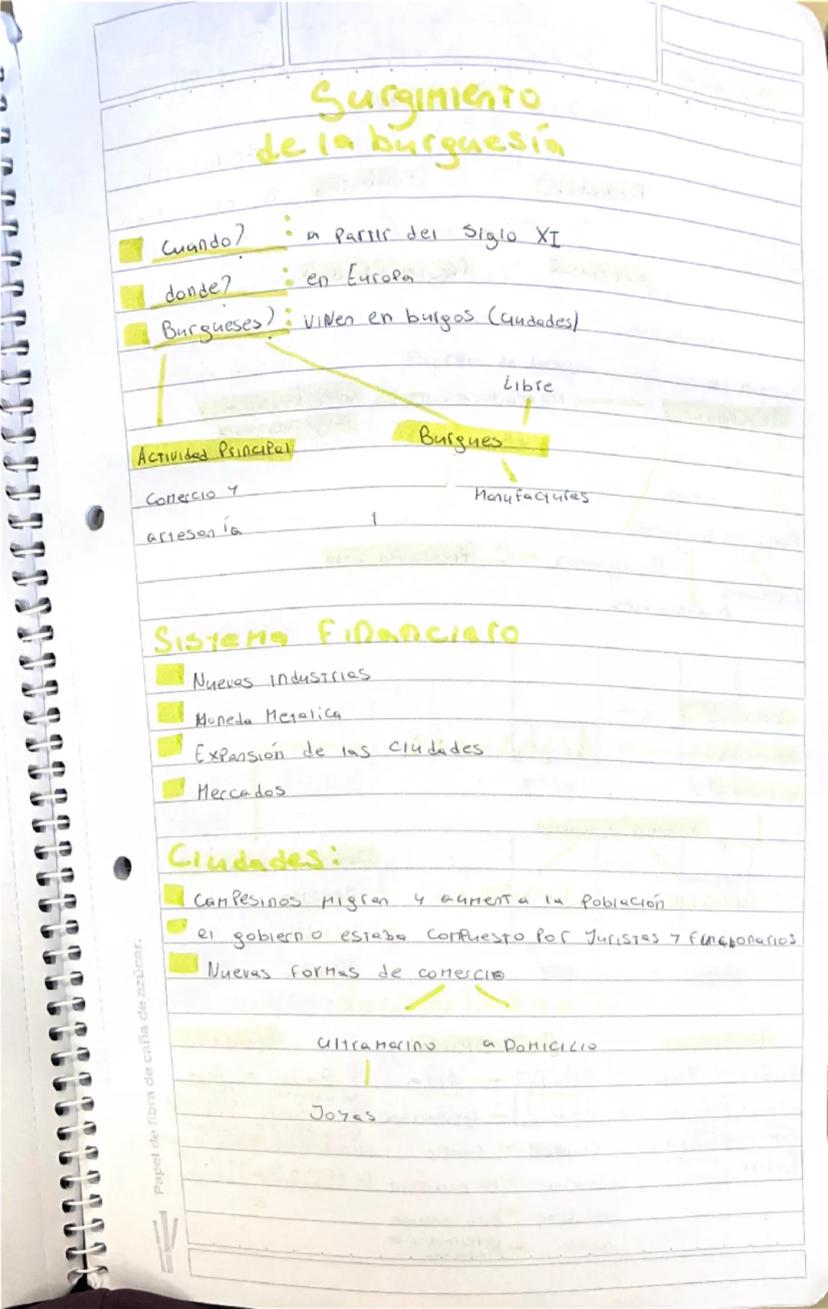 Surgimiento
de la burguesía
Cuando? : a partir del Siglo XI
donde? : en Europa
Burgueses? : viven en burgos (ciudades)
Libre
Actividad Principal
Burgues
Comercio y
Manufacturas
artesanía
Sistema Financiaro
Nuevas industrias
Moneda Metalica
Expansión de las ciudades
Mercados
Ciudades:
Campesinos migran y aumenta la población
el gobierno estaba compuesto por Juristas y funcionarios
Nuevas formas de comercio
ultramarino a Domicilio
Joyas
Papel de fibra de caña de azúcar.